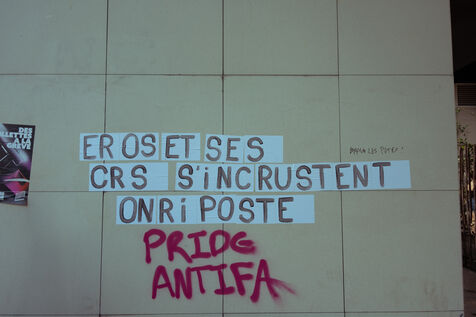 DES
À LA
GRÈVE
EROS ET SES
CRS S'INCRUSTENT
ON RiPOSTE
PRIDE
ANTIFA